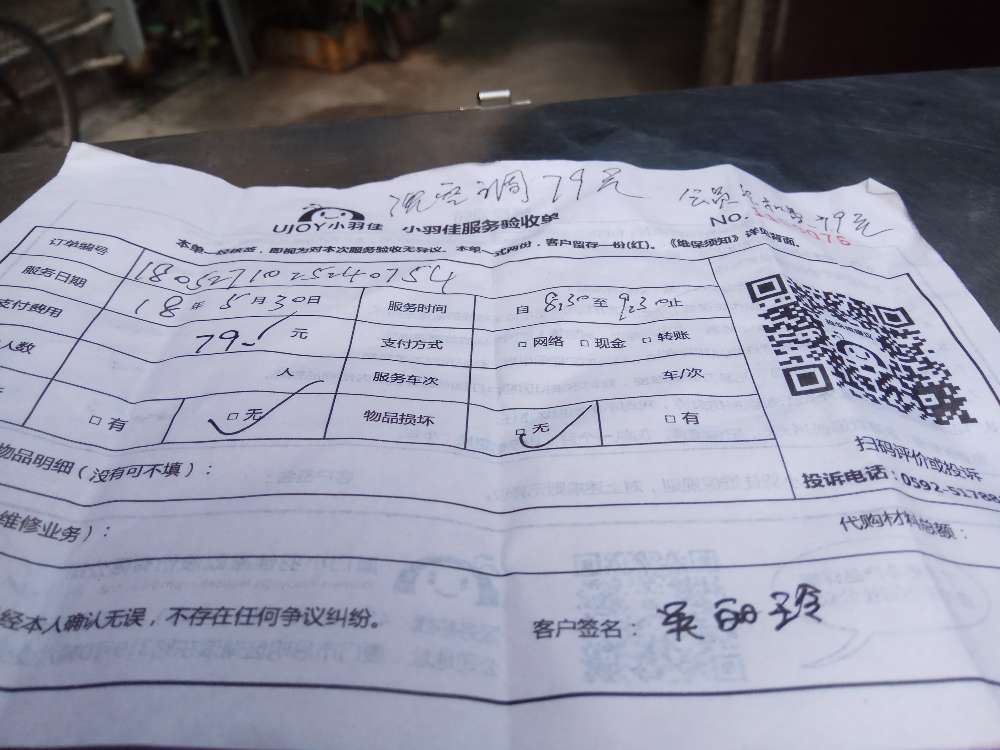 洗空调79元
79元
UJOY小羽佳 小羽佳服务验收单
NO.
本单一经核签,即视为对本次服务验收无异议。本单一式两份,客户留存一份(红)。《绝保须知》详见背面。
订单编号 1805271025240754
服务日期 18年5月30日 服务时间 自8:30至9:30止
支付费用 79.- 元 支付方式 □网络 □现金 □转账
人数 人 服务车次 车/次
□有 □无 物品损坏 □无 □有
扫码评价或投诉
投诉电话:0592-51788
物品明细(没有可不填):
维修业务): 代购材料总额:
经本人确认无误,不存在任何争议纠纷。 客户签名:吴丽玲